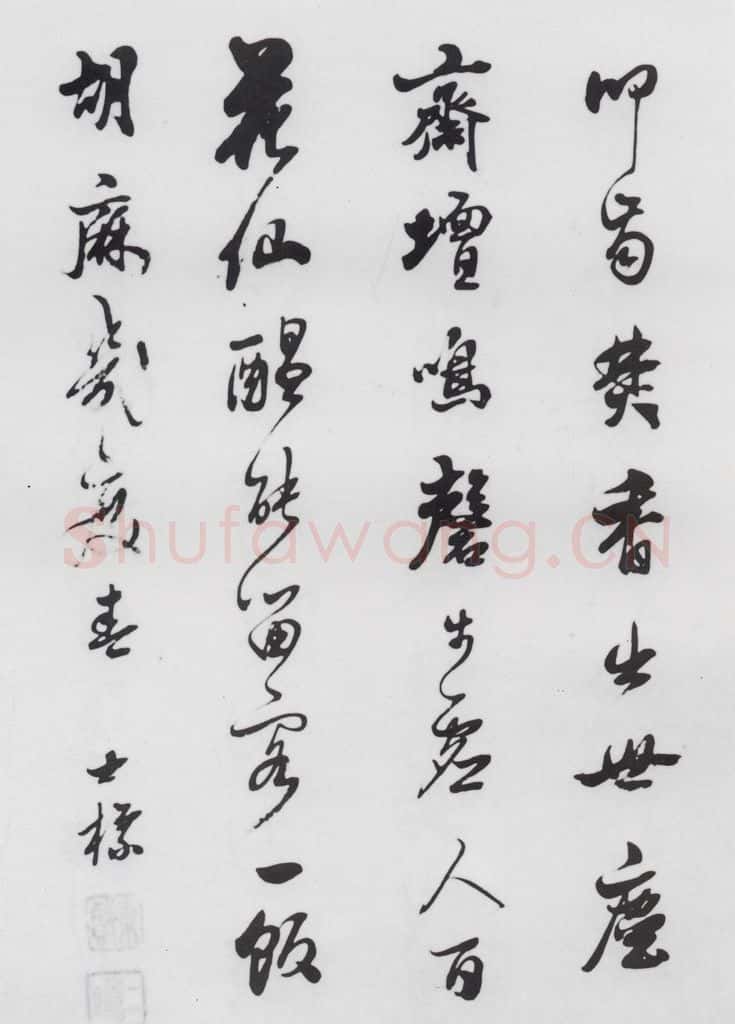 叩齒焚香出世塵
齋壇鳴磬步虛人百
花仙醖能留客一飯
胡麻幾度春 士標
Shufawang.CN